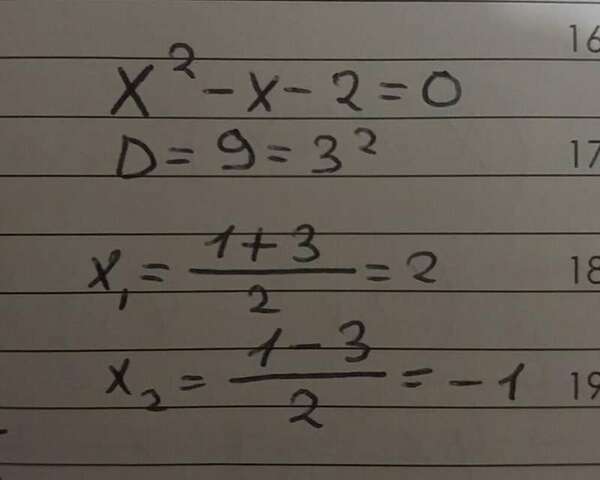 16
x² - x - 2 = 0
D = 9 = 3²
17
x₁ = (1 + 3)/2 = 2
18
x₂ = (1 - 3)/2 = -1
19